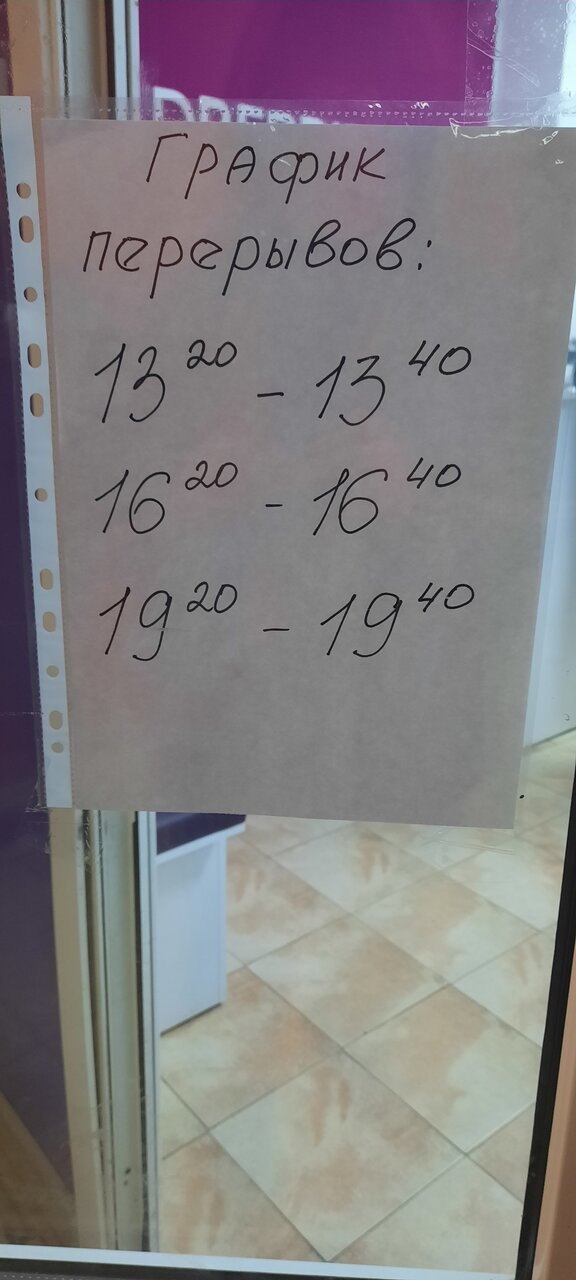 График
перерывов:
13²⁰ - 13⁴⁰
16²⁰ - 16⁴⁰
19²⁰ - 19⁴⁰